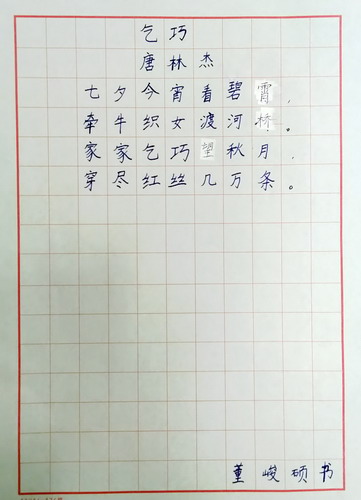 乞巧
唐 林杰
七夕今宵看碧霄,
牵牛织女渡河桥。
家家乞巧望秋月.
穿尽红丝几万条。
董峻硕书